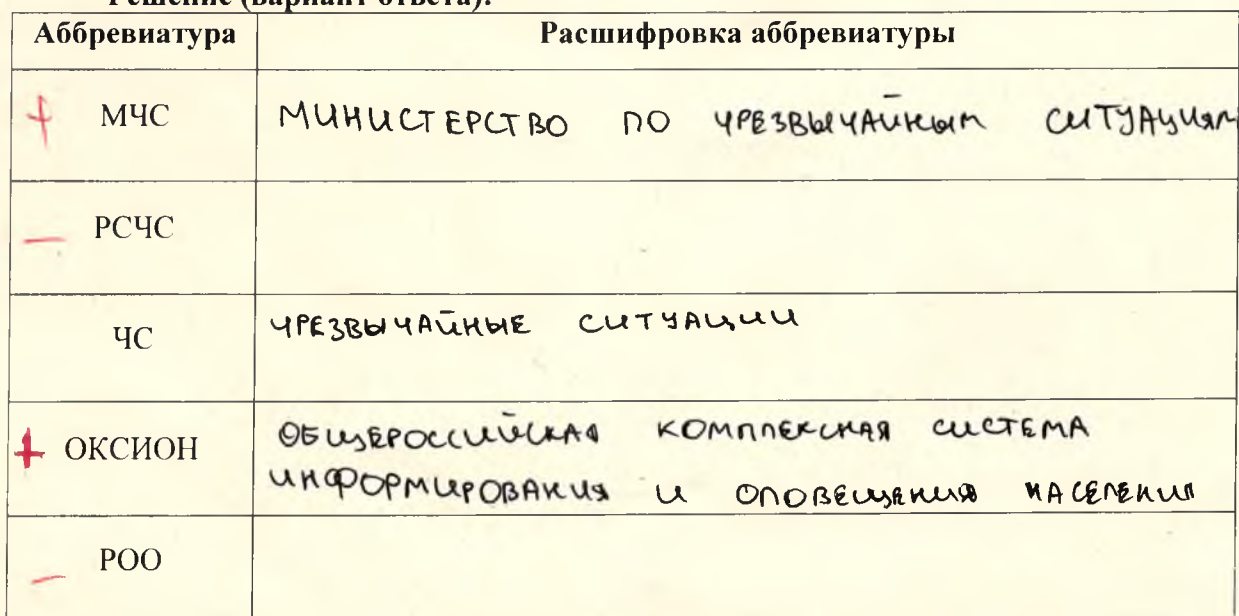 Решение (вариант ответа):
Аббревиатура Расшифровка аббревиатуры
+ МЧС МИНИСТЕРСТВО ПО ЧРЕЗВЫЧАЙНЫМ СИТУАЦИЯМ
— РСЧС
ЧС ЧРЕЗВЫЧАЙНЫЕ СИТУАЦИИ
+ ОКСИОН ОБЩЕРОССИЙСКАЯ КОМПЛЕКСНАЯ СИСТЕМА
ИНФОРМИРОВАНИЯ И ОПОВЕЩЕНИЯ НАСЕЛЕНИЯ
— РОО